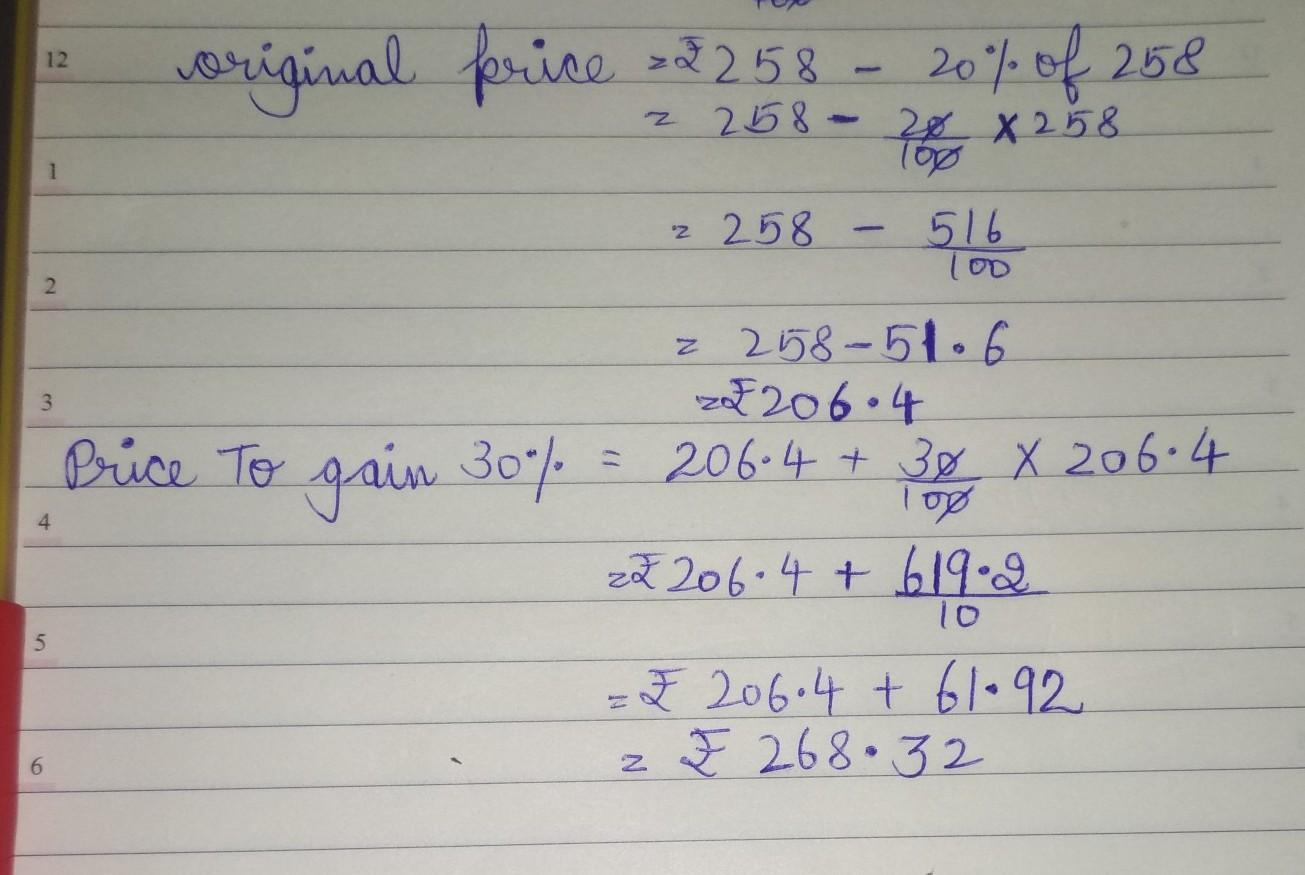 12 original price = ₹258 - 20% of 258
= 258 - 20/100 × 258
1
= 258 - 516/100
2
= 258 - 51.6
3 = ₹206.4
Price To gain 30% = 206.4 + 30/100 × 206.4
4
= ₹206.4 + 619.2/10
5
= ₹ 206.4 + 61.92
6 = ₹ 268.32